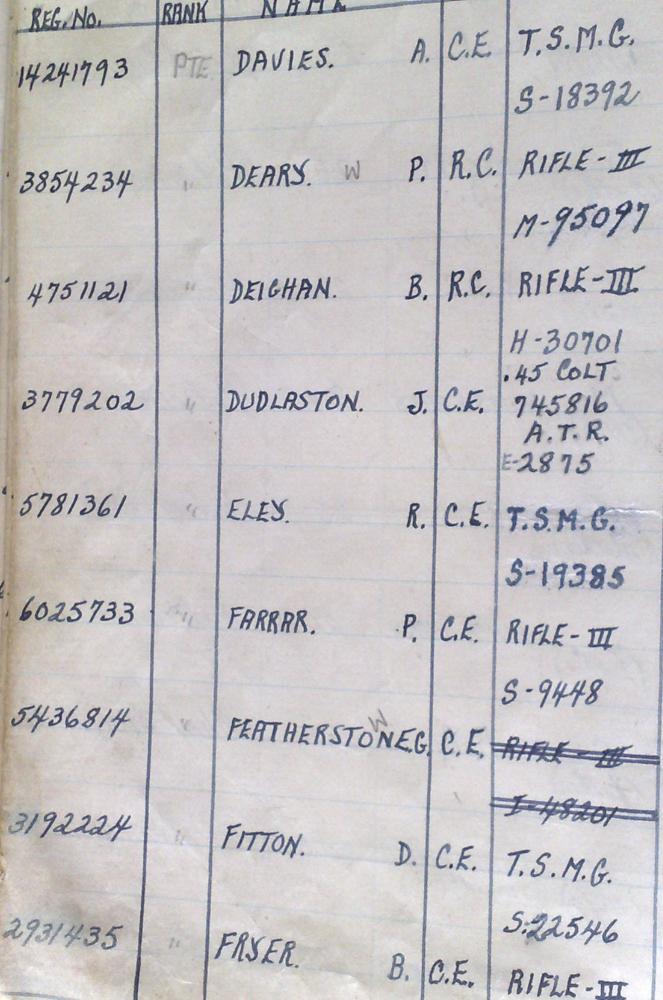 REG. No. RANK NAME
14241793 PTE DAVIES. A. C.E T.S.M.G.
S-18392
3854234 " DEARY. W P. R.C. RIFLE-III
M-95097
4751121 " DEIGHAN. B. R.C. RIFLE-III
H-30701
.45 COLT
3779202 " DUDLASTON. J. C.E. 745816
A.T.R.
E-2875
5781361 " ELEY. R. C.E. T.S.M.G.
S-19385
6025733 " FARRAR. P. C.E. RIFLE-III
S-9448
5436814 " FEATHERSTONE W G. C.E. RIFLE-III
I-48201
3192224 " FITTON. D. C.E. T.S.M.G.
S-22546
2931435 " FRYER. B. C.E. RIFLE-III